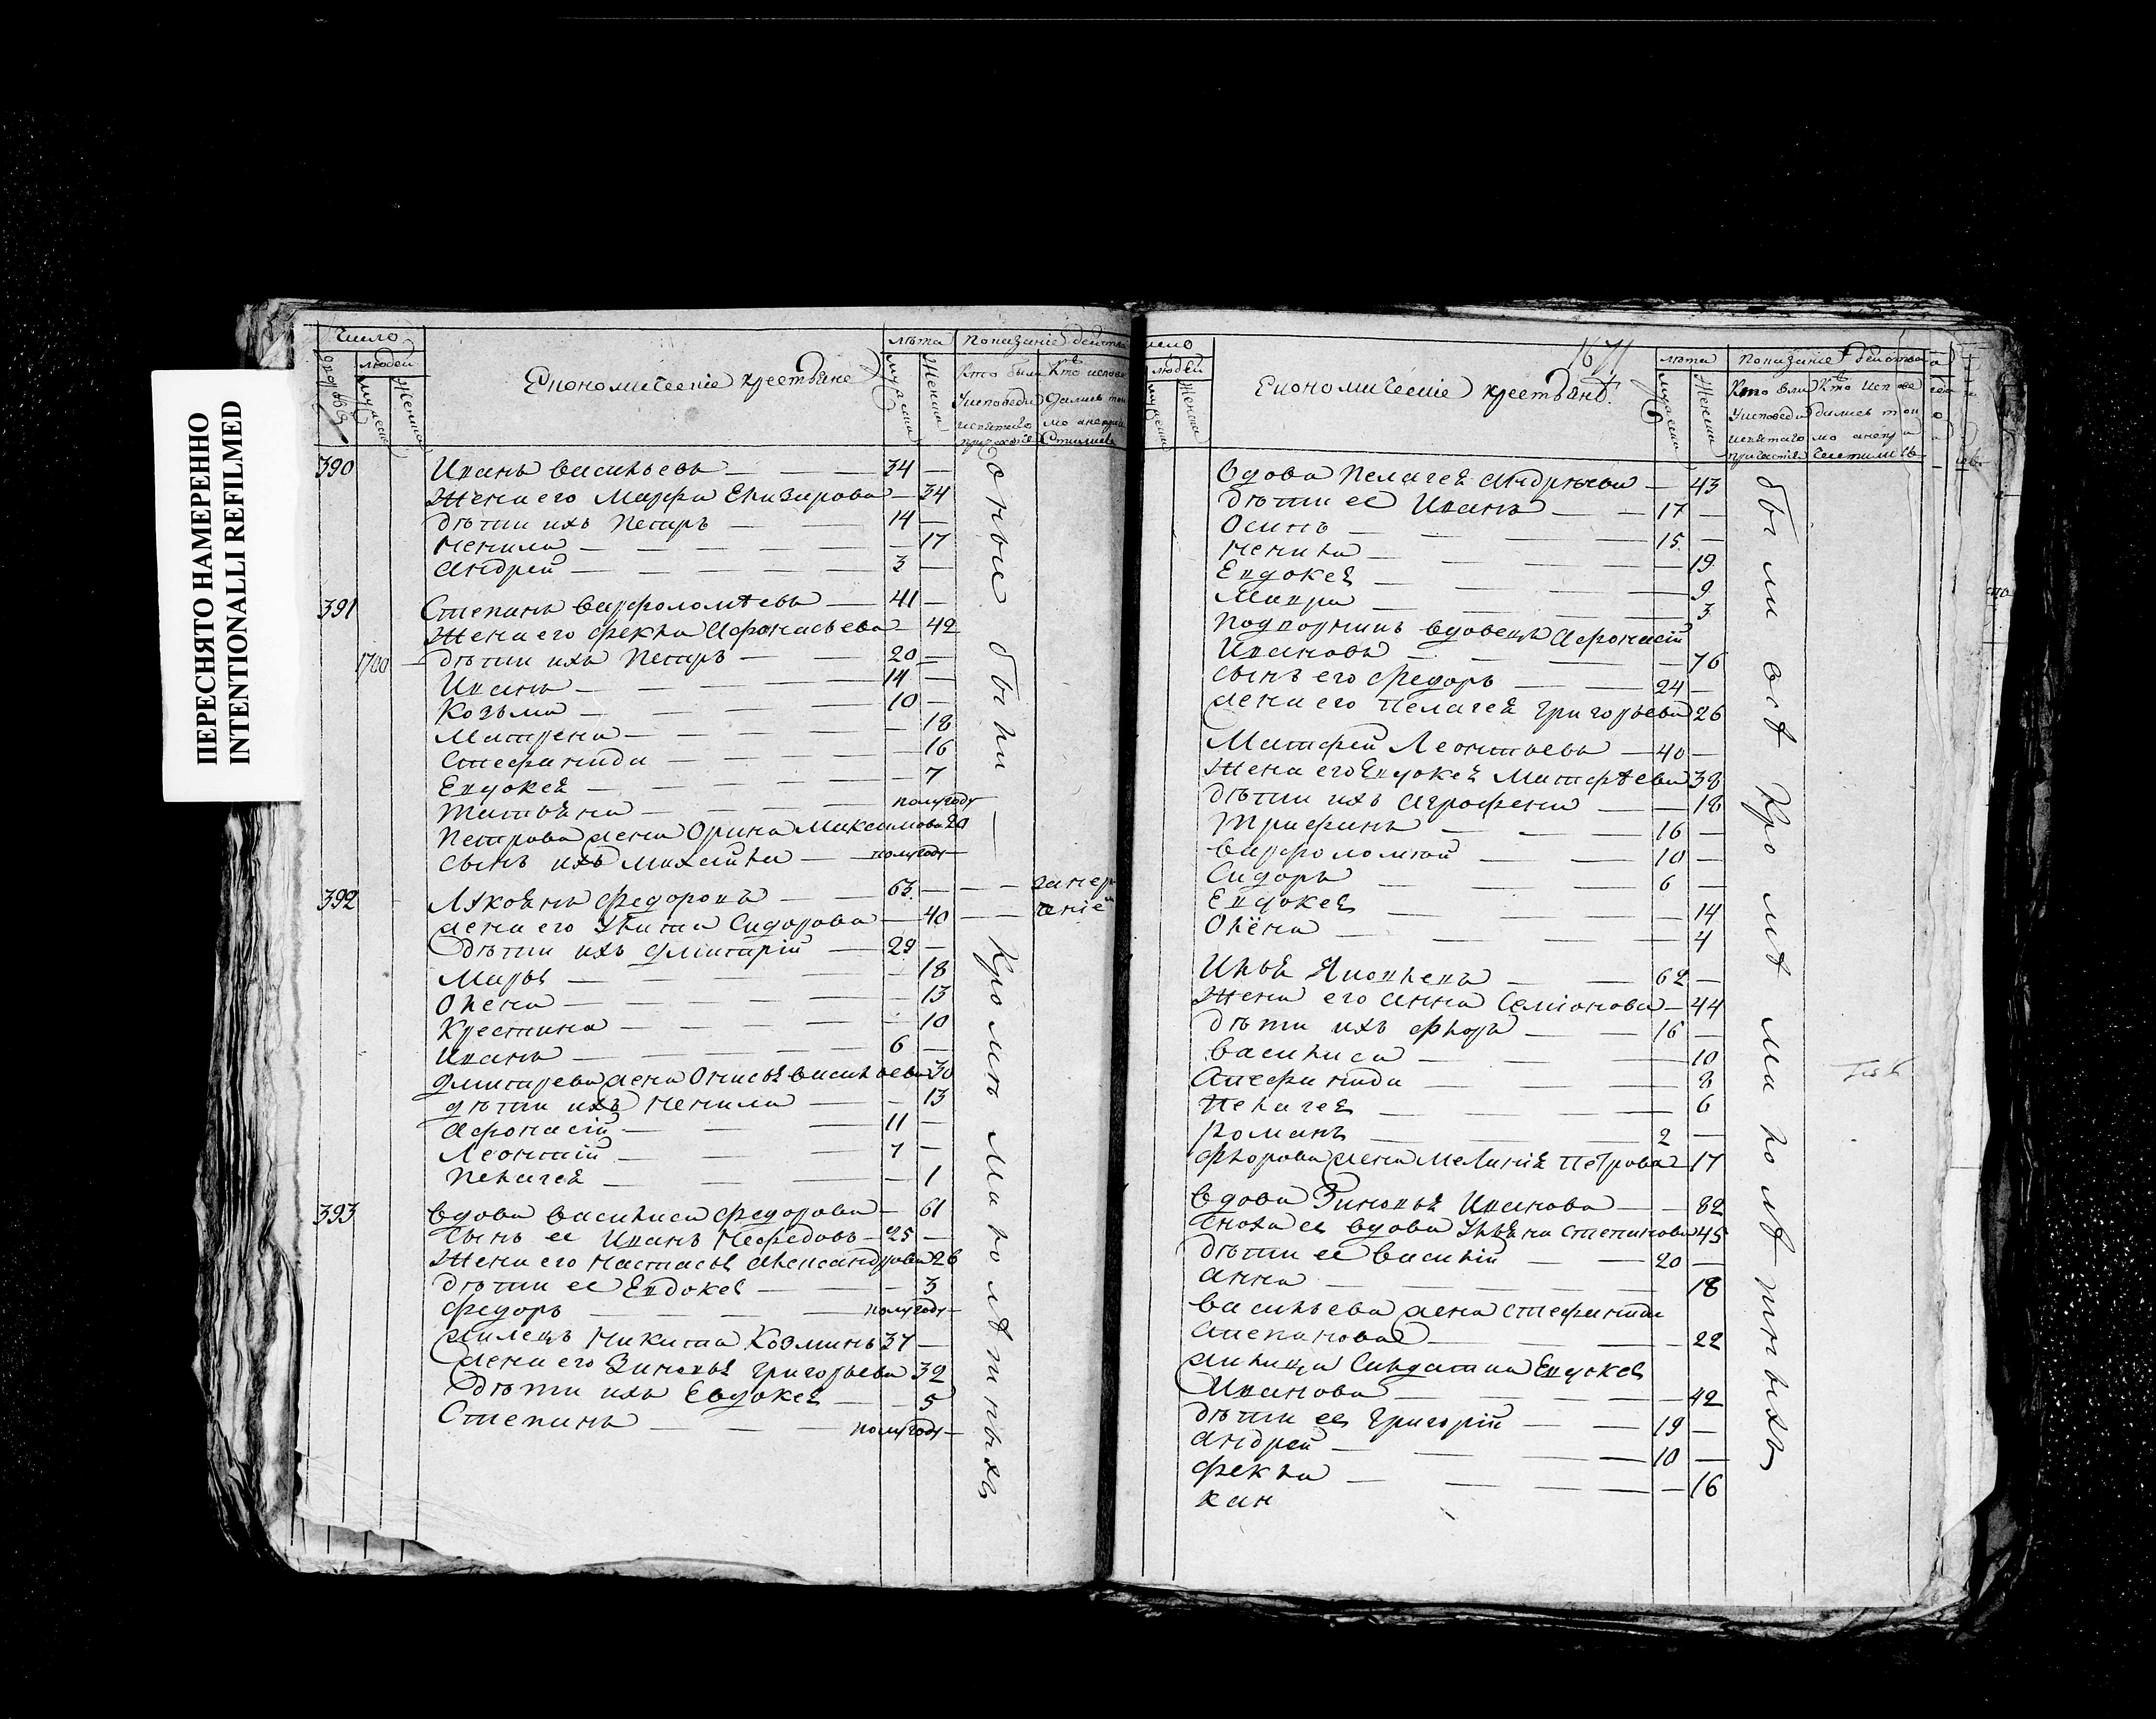 ПЕРЕСНЯТО НАМЕРЕННО
INTENTIONALLI REFILMED
Число
дворовъ
людей
мужеска
женска
Економическіе крестьяне
лѣта
мужеска
женска
Показаніе действа
Кто были
у исповеди
и святаго
Кто испове
дались ток
мо а не при
стились
390 Иванъ Васильевъ — 34 —
Жена его Марфа Елизарова — 34
дѣти ихъ Петръ — 14 —
Ненила — 17
Андрей — 3 —
391 Степанъ Варфоломѣевъ — 41 —
Жена его Фекла Афонасьева — 42
1700 дѣти ихъ Петръ — 20 —
Иванъ — 14 —
Козьма — 10 —
Матрена — 18
Стефанида — 16
Евдокея — 7
Татьяна — полугоду
Петрова жена Орина Максимова 20
сынъ ихъ Михайла — полугоду
392 Федоровъ — 63 —
жена его Улита Сидорова — 40
дѣти ихъ Дмитрій — 29 —
Марья — 18
Олена — 13
Крестина — 10
Иванъ — 6 —
Дмитрева жена Онисья Васильева 30
дѣти ихъ Ненила — 13
Афонасій — 11 —
Леонтій — 7 —
Пелагея — 1
393 вдова Василиса Федорова — 61
Сынъ ее Иванъ Нефедовъ — 25 —
Жена его Настасья Александрова 26
дѣти ее Евдокея — 3
Федоръ — полугоду
жилецъ Никита Козминъ 37 —
жена его Зиновья Григорьева 32
дѣти ихъ Евдокея — 5
Степанъ — полугоду
оные были кромѣ малолѣтныхъ
людей
мужеска
женска
Економическіе крестьяне
1671
лѣта
мужеска
женска
Показаніе действа
Кто были
у исповеди
и святаго
причастія
Кто испове
дались ток
мо а не при
частились
Вдова Пелагея Андрѣева — 43
дѣти ее Иванъ — 17 —
Осипъ — 15 —
Ненила — 19
Евдокея — 9
Мавра — 3
подворникъ вдовецъ Афонасій
Ивановъ — 76
сынъ его Федоръ — 24 —
жена его Пелагея Григорьева 26
Матфей Леонтьевъ — 40 —
Жена его Евдокея Матфѣева 38
дѣти ихъ Аграфена — 18
Трифанъ — 16 —
Варфоломей — 10 —
Сидоръ — 6 —
Евдокея — 14
Олёна — 4
Илья Яковлевъ — 62 —
Жена его Анна Семіонова — 44
дѣти ихъ Флоръ — 16 —
Василиса — 10
Стефанида — 8
Пелагея — 6
Романъ — 2 —
Флорова жена Меланія Петрова 17
вдова Зиновья Иванова — 82
Сноха ее вдова Ульяна Степанова 45
дѣти ее Василій — 20 —
Анна — 18
Васильева жена Стефанида
Степанова — 22
жилица Салдатка Евдокея
Иванова — 42
дѣти ее Григорій — 19 —
Андрей — 10 —
Фекла — 16
были всѣ кромѣ малолѣтныхъ